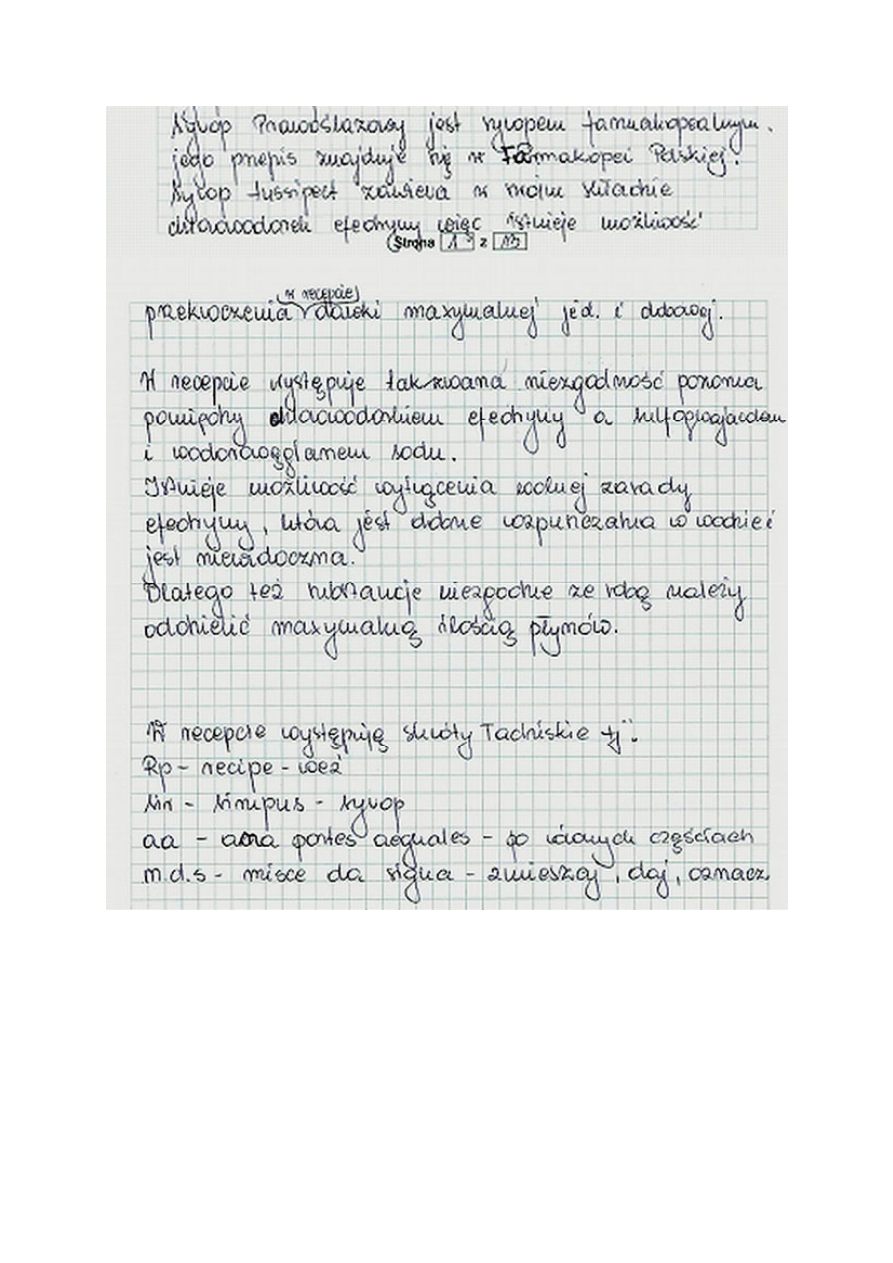 Syrop Prawoślazowy jest syropem farmakopealnym.
jego przepis znajduje się w Farmakopei Polskiej.
Syrop tussipect zawiera w swoim składzie
chlorowodorek efedryny więc istnieje możliwość
Strona 1 z 13
(w recepcie)
przekroczenia dawki maxymalnej jed. i dobowej.
W recepcie występuje tak zwana niezgodność pozorna
pomiędzy chlorowodorkiem efedryny a sulfogwajacolem
i wodorowęglanem sodu.
Istnieje możliwość wytrącenia wolnej zasady
efedryny, która jest dobrze rozpuszczalna w wodzie i
jest niewidoczna.
Dlatego też substancje niezgodne ze sobą należy
oddzielić maxymalną ilością płynów.
W recepcie występują skróty Łacińskie tj.:
Rp - recipe - weź
Sir - Sirupus - syrop
aa - ana partes aequales - po równych częściach
m.d.s - misce da signa - zmieszaj, daj, oznacz